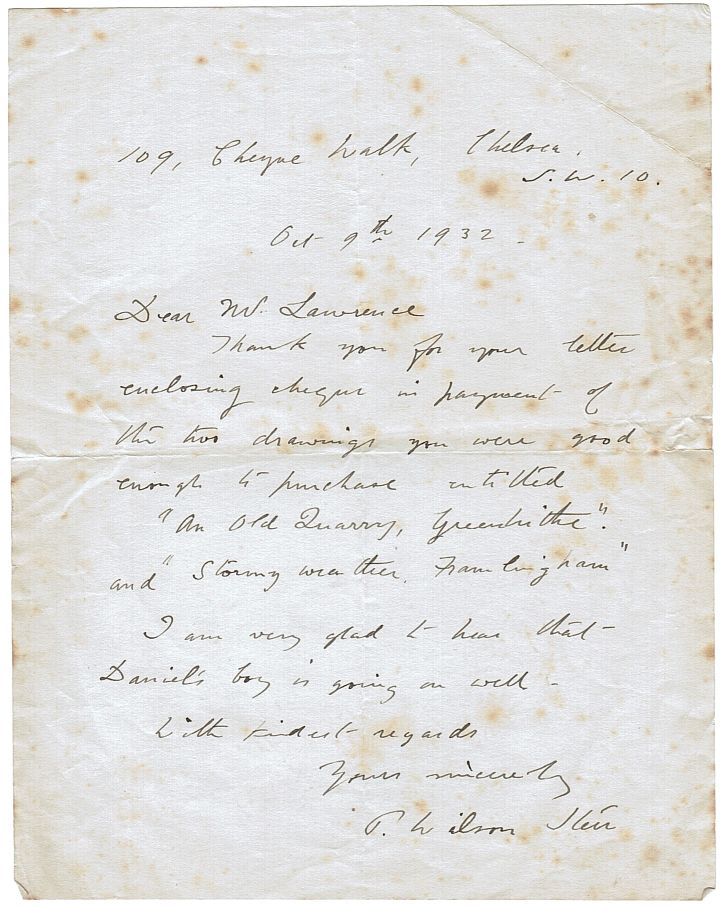 109, Cheyne Walk, Chelsea.
S.W. 10.
Oct 9th 1932 -
Dear Mr. Lawrence
Thank you for your letter
enclosing cheque in payment of
the two drawings you were good
enough to purchase entitled
"An Old Quarry, Greenhithe".
and "Stormy weather, Framlingham"
I am very glad to hear that
Daniel's boy is going on well -
With kindest regards
Yours sincerely
P. Wilson Steer